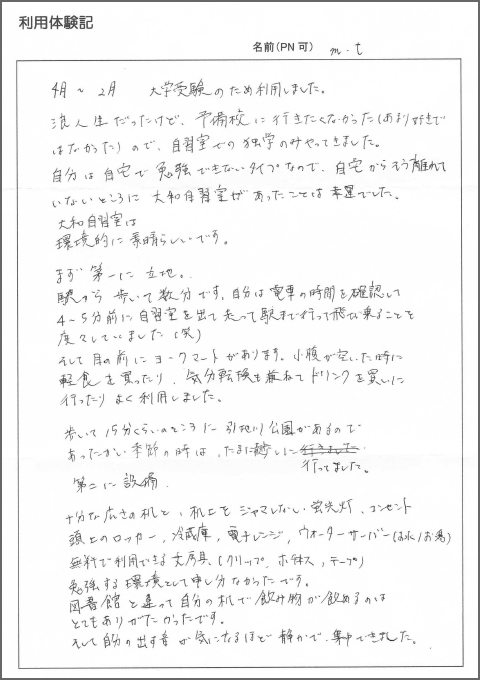 利用体験記
名前(PN可) m.t
4月〜2月 大学受験のため利用しました。
浪人生だったけど、予備校に行きたくなかった(あまり好きで
はなかった)ので、自習室での独学のみやってきました。
自分は自宅で勉強できないタイプなので、自宅からそう離れて
いないところに大和自習室があったことは幸運でした。
大和自習室は
環境的に素晴らしいです。
まず第一に立地。
駅から歩いて数分です。自分は電車の時間を確認して
4〜5分前に自習室を出て走って駅まで行って飛び乗ることを
度々していました(笑)
そして目の前にヨークマートがあります。小腹が空いた時に
軽食を買ったり、気分転換も兼ねてドリンクを買いに
行ったりよく利用しました。
歩いて15分くらいのところに引地川公園があるので
あったかい季節の時は、たまに
行ってました。
第二に設備
十分な広さの机と、机上をジャマしない蛍光灯、コンセント
頭上のロッカー、冷蔵庫、電子レンジ、ウォーターサーバー(冷水/お湯)
無料で利用できる文房具、(クリップ、ホチキス、テープ)
勉強する環境として申し分なかったです。
図書館と違って自分の机で飲み物が飲めるのは
とてもありがたかったです。
そして自分の出す音が気になるほど静かで、集中できました。